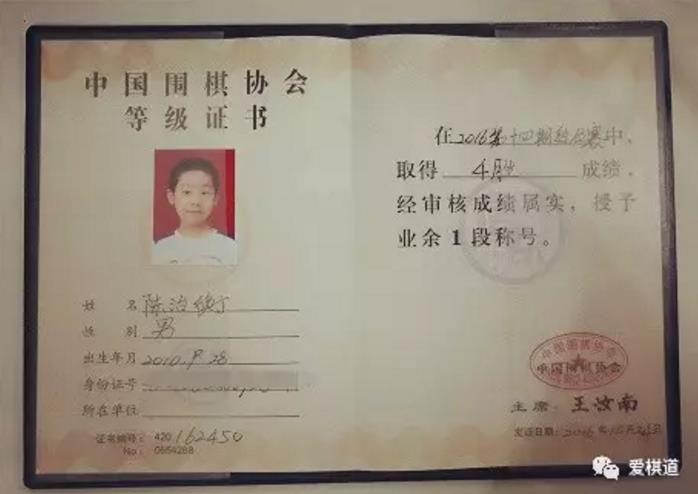 中国围棋协会
等级证书
姓名 陈治
性别 男
出生年月
身份证号
所在单位
证书编号: 420 162450
No: 0654288
在2016第十四期段位赛中,
取得 4胜 成绩。
经审核成绩属实,授予
业余1段称号。
中国围棋协会
中国围棋协会
主席: 王汝南
发证日期: 2016年
爱棋道